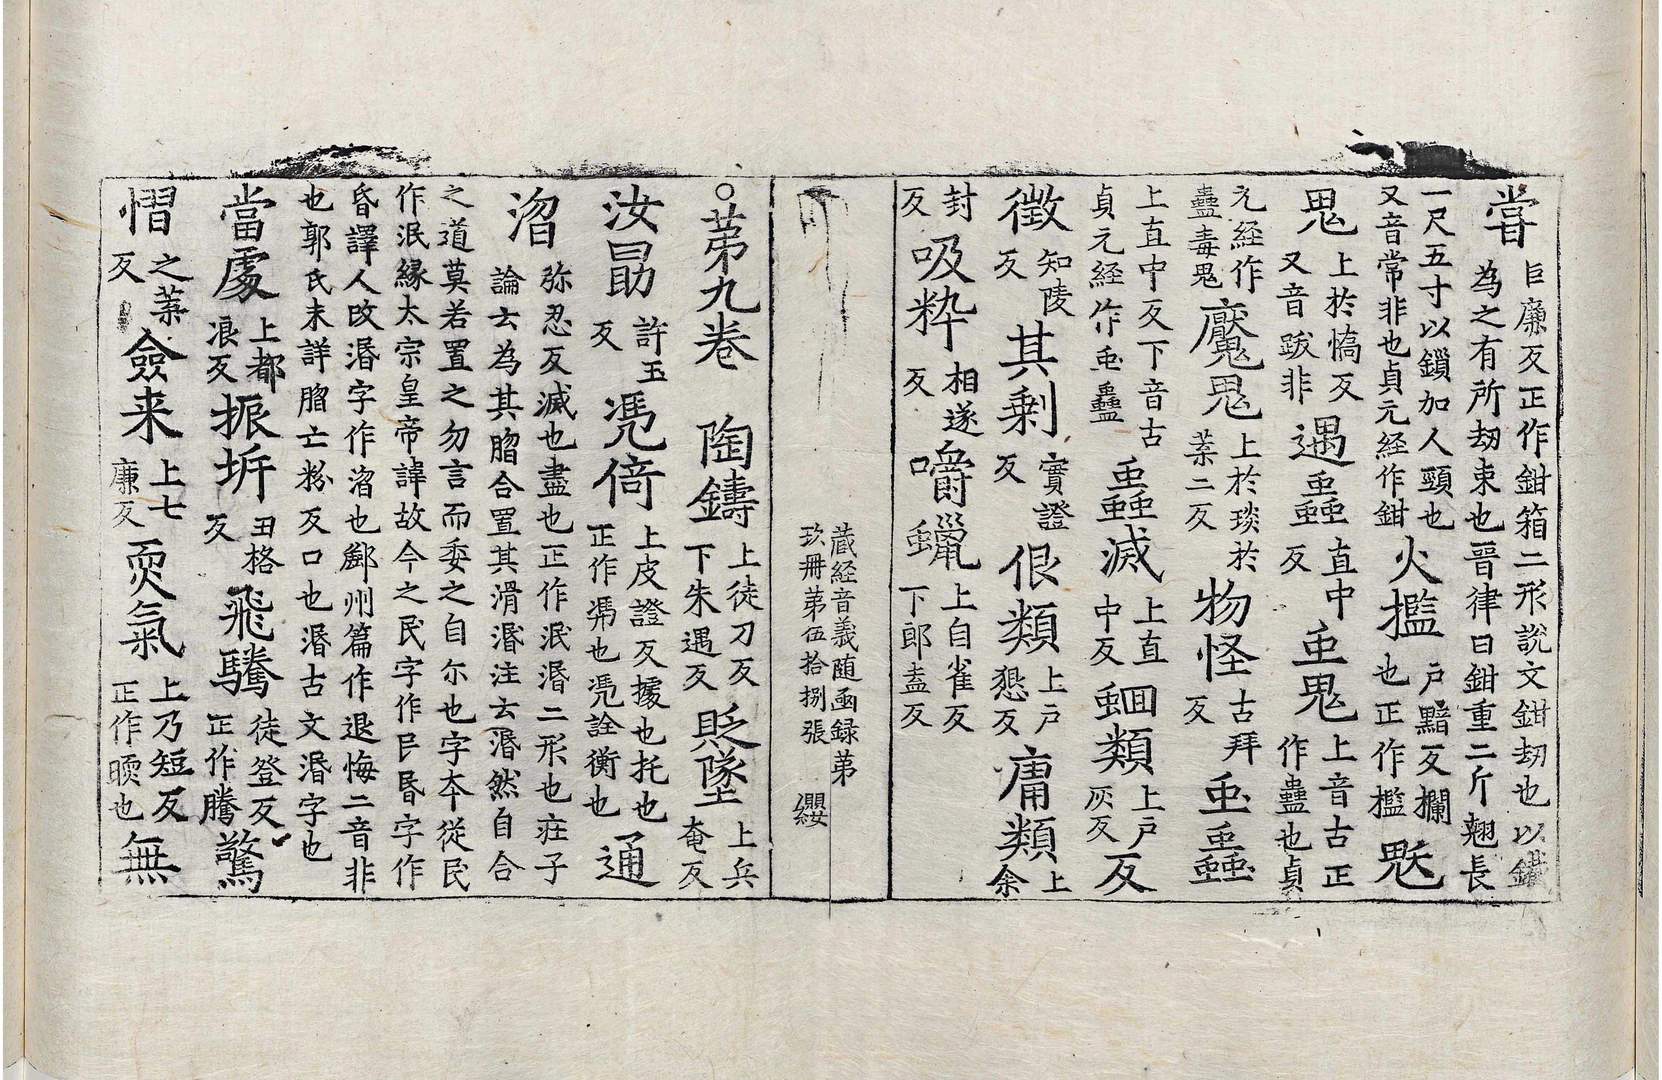 甞巨廉反正作鉗箝二形說文鉗刼也以鐵
為之有所刼束也晉律曰鉗重二斤翹長
一尺五寸以鎻加人頸也火㯺戶黯反欄
又音常非也貞元経作鉗也正作檻魃
鬼上於憍反又音跋非遇蟲直中反䖝鬼上音古正作蠱也貞
元経作蠱毒鬼魘鬼上於琰於葉二反物怪古拜反䖝蟲
上直中反下音古貞元経作䖝蠱蟲滅上直中反蛔類上戶灰反反
徵知陵反其剩實證反佷類上戶懇反庸類上余
封反吸粹相遂反嚼蠟上自雀反下郎盍反
蔵経音義随函録第
玖冊苐伍拾捌張 纓
○苐九卷 陶鑄上徒刀反下朱遇反貶墜上兵奄反
汝勗許玉反凴倚上皮證反據也托也正作凭也凴詮衡也通
㳷弥忍反滅也盡也正作泯湣二形也莊子
論云為其脗合置其滑湣注云湣然自合
之道莫若置之勿言而委之自尒也字夲從民
作泯緣太宗皇帝諱故今之民字作㞐昬字作
昏譯人改湣字作㳷也鄮州篇作退悔二音非
也郭氏未詳脗亡粉反口也湣古文湣字也
當處上都浪反振坼丑格反飛騰徒登反正作騰驚
慴之葉反僉来上七廉反耎氣上乃短反正作㬉也無